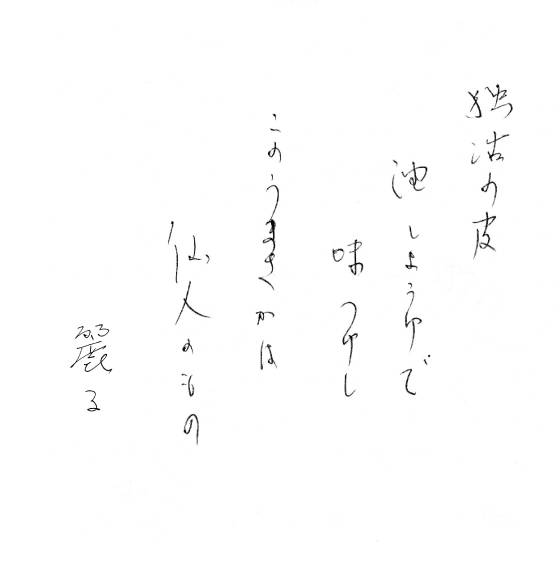 独活の皮
油しょうゆで
味つけし
このうまさかは
仙人のもの